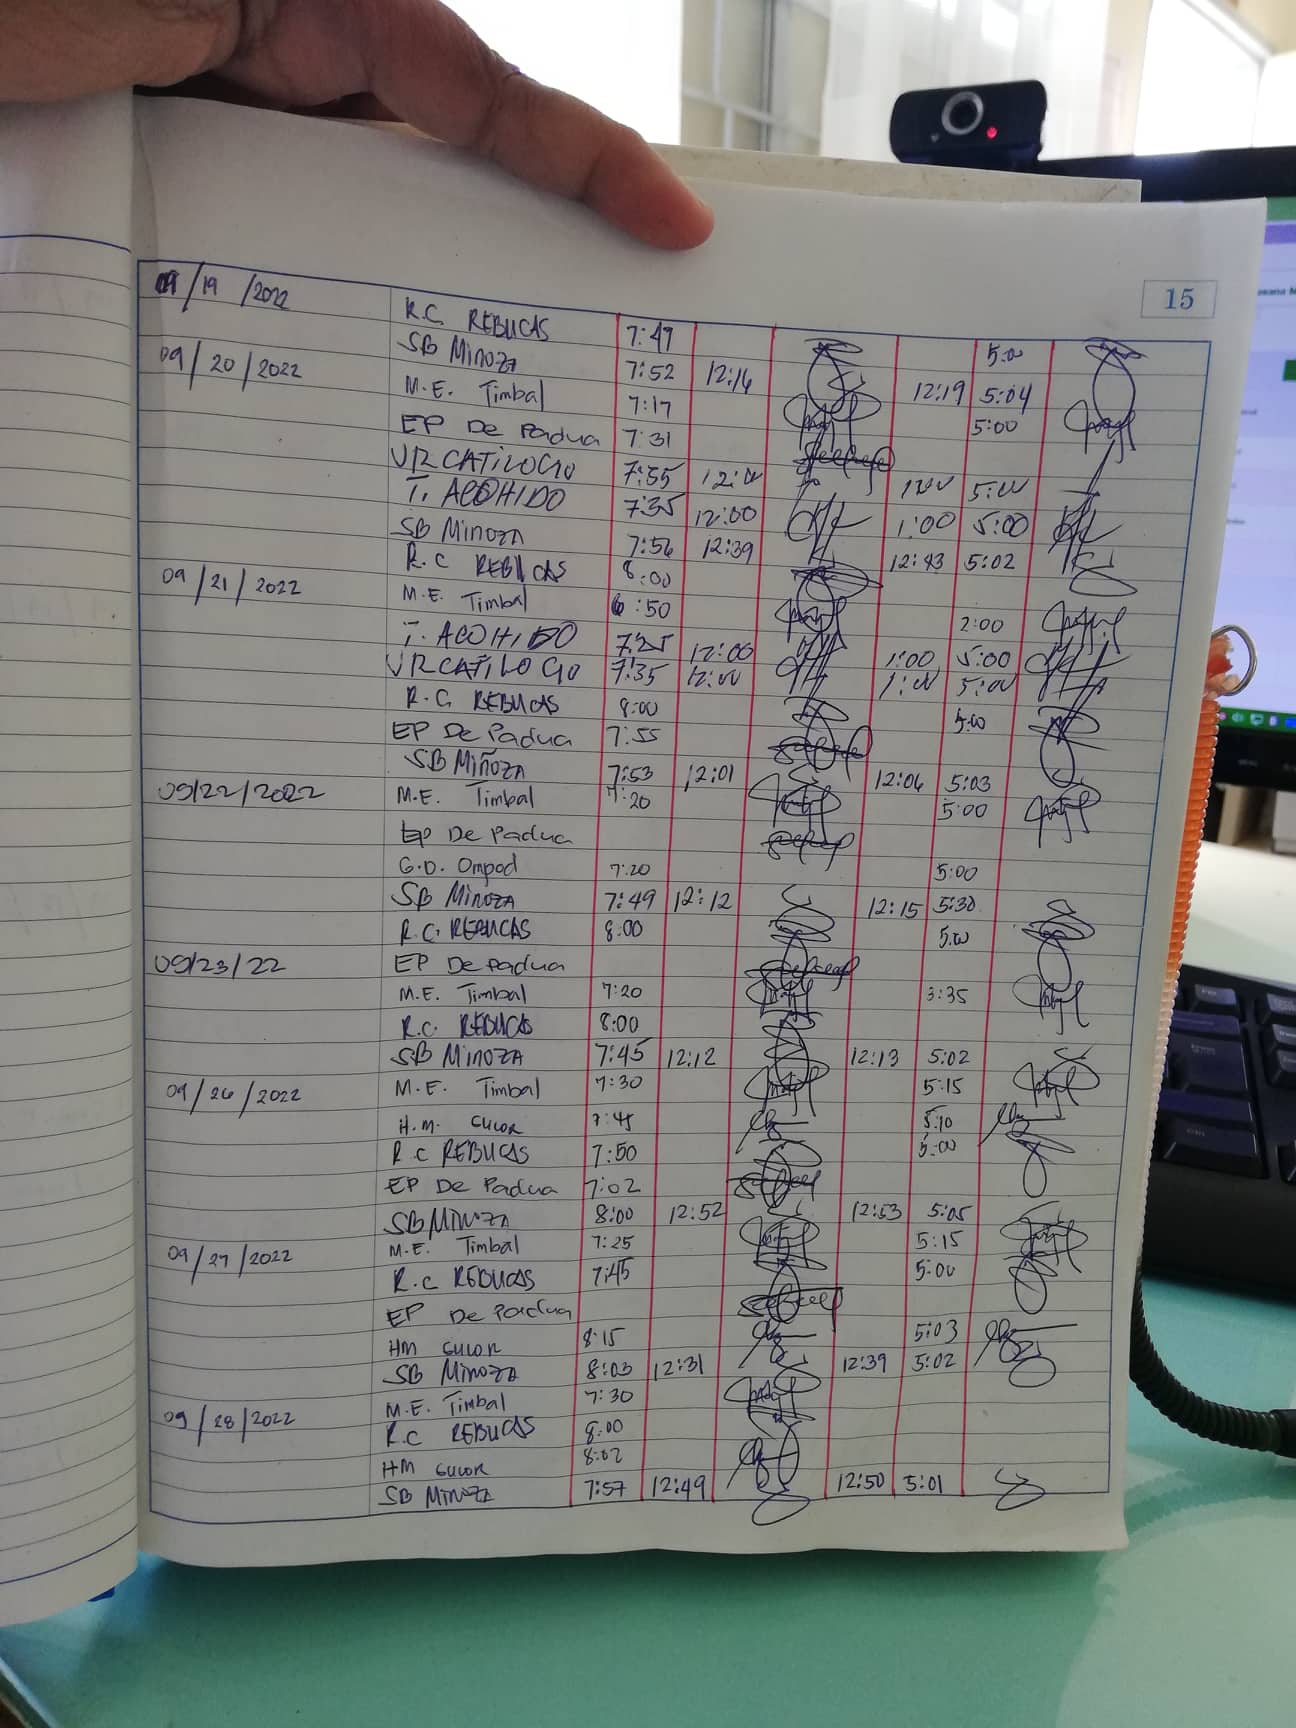 15
09/19/2022 R.C. REBUCAS 7:47 5:00
SB Minoza 7:52 12:14 12:19 5:04
09/20/2022 M.E. Timbal 7:17 5:00
EP De Padua 7:31
VR CATILOGO 7:55 12:00 1:00 5:00
T. ACOHIDO 7:35 12:00 1:00 5:00
SB Minoza 7:56 12:39 12:43 5:02
R.C REBUCAS 8:00
09/21/2022 M.E. Timbal 6:50 2:00
T. ACOHIDO 7:25 12:00 1:00 5:00
VR CATILOGO 7:35 12:00 1:00 5:00
R.C. REBUCAS 8:00 5:00
EP De Padua 7:55
SB Miñoza 7:53 12:01 12:06 5:03
09/22/2022 M.E. Timbal 7:20 5:00
EP De Padua
G.D. Ompod 7:20 5:00
SB Minoza 7:49 12:12 12:15 5:30
R.C. REBUCAS 8:00 5:00
09/23/22 EP De Padua
M.E. Timbal 7:20 3:35
R.C. REBUCAS 8:00
SB Minoza 7:45 12:12 12:13 5:02
09/26/2022 M.E. Timbal 7:30 5:15
H.M. 7:45 5:10
R.C REBUCAS 7:50 5:00
EP De Padua 7:02
SB Minoza 8:00 12:52 12:53 5:05
09/27/2022 M.E. Timbal 7:25 5:15
R.C REBUCAS 7:45 5:00
EP De Padua
HM 8:15 5:03
SB Minoza 8:03 12:31 12:39 5:02
09/28/2022 M.E. Timbal 7:30
R.C REBUCAS 8:00
HM 8:02
SB Minoza 7:57 12:49 12:50 5:01